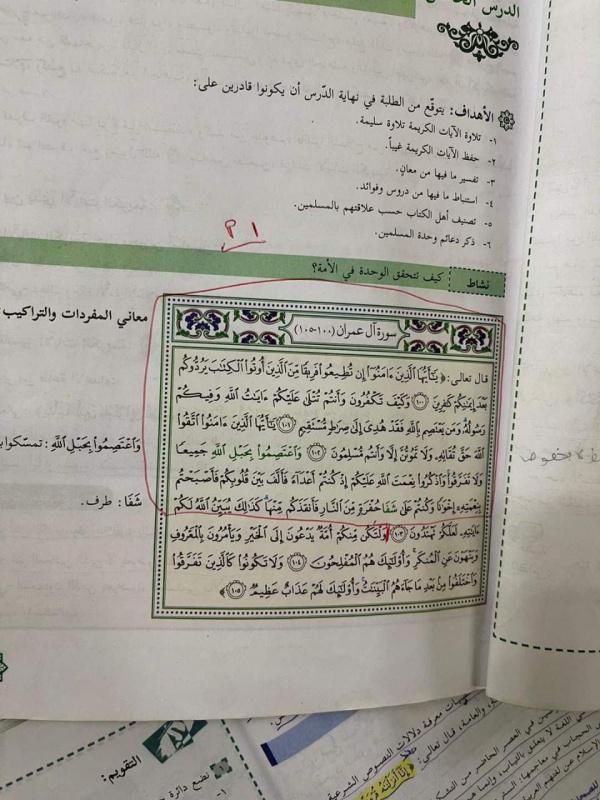 الدرس
الأهداف: يتوقّع من الطلبة في نهاية الدّرس أن يكونوا قادرين على:
١- تلاوة الآيات الكريمة تلاوة سليمة.
٢- حفظ الآيات الكريمة غيباً.
٣- تفسير ما فيها من معانٍ.
٤- استنباط ما فيها من دروس وفوائد.
٥- تصنيف أهل الكتاب حسب علاقتهم بالمسلمين.
٦- ذكر دعائم وحدة المسلمين.
نشاط
كيف تتحقق الوحدة في الأمة؟
سورة آل عمران (١٠٠-١٠٥)
قال تعالى: ﴿ يَٰٓأَيُّهَا ٱلَّذِينَ ءَامَنُوٓا۟ إِن تُطِيعُوا۟ فَرِيقًا مِّنَ ٱلَّذِينَ أُوتُوا۟ ٱلْكِتَٰبَ يَرُدُّوكُم
بَعْدَ إِيمَٰنِكُمْ كَٰفِرِينَ ١٠٠ وَكَيْفَ تَكْفُرُونَ وَأَنتُمْ تُتْلَىٰ عَلَيْكُمْ ءَايَٰتُ ٱللَّهِ وَفِيكُمْ
رَسُولُهُۥ وَمَن يَعْتَصِم بِٱللَّهِ فَقَدْ هُدِىَ إِلَىٰ صِرَٰطٍ مُّسْتَقِيمٍ ١٠١ يَٰٓأَيُّهَا ٱلَّذِينَ ءَامَنُوا۟ ٱتَّقُوا۟
ٱللَّهَ حَقَّ تُقَاتِهِۦ وَلَا تَمُوتُنَّ إِلَّا وَأَنتُم مُّسْلِمُونَ ١٠٢ وَٱعْتَصِمُوا۟ بِحَبْلِ ٱللَّهِ جَمِيعًا
وَلَا تَفَرَّقُوا۟ وَٱذْكُرُوا۟ نِعْمَتَ ٱللَّهِ عَلَيْكُمْ إِذْ كُنتُمْ أَعْدَآءً فَأَلَّفَ بَيْنَ قُلُوبِكُمْ فَأَصْبَحْتُم
بِنِعْمَتِهِۦٓ إِخْوَٰنًا وَكُنتُمْ عَلَىٰ شَفَا حُفْرَةٍ مِّنَ ٱلنَّارِ فَأَنقَذَكُم مِّنْهَا كَذَٰلِكَ يُبَيِّنُ ٱللَّهُ لَكُمْ
ءَايَٰتِهِۦ لَعَلَّكُمْ تَهْتَدُونَ ١٠٣ وَلْتَكُن مِّنكُمْ أُمَّةٌ يَدْعُونَ إِلَى ٱلْخَيْرِ وَيَأْمُرُونَ بِٱلْمَعْرُوفِ
وَيَنْهَوْنَ عَنِ ٱلْمُنكَرِ وَأُو۟لَٰٓئِكَ هُمُ ٱلْمُفْلِحُونَ ١٠٤ وَلَا تَكُونُوا۟ كَٱلَّذِينَ تَفَرَّقُوا۟
وَٱخْتَلَفُوا۟ مِنۢ بَعْدِ مَا جَآءَهُمُ ٱلْبَيِّنَٰتُ وَأُو۟لَٰٓئِكَ لَهُمْ عَذَابٌ عَظِيمٌ ١٠٥ ﴾
معاني المفردات والتراكيب:
وَٱعْتَصِمُوا۟ بِحَبْلِ ٱللَّهِ: تمسّكوا
شَفَا: طرف.
التقويم:
نضع دائرة
معرفة دلالات النصوص الشرعية
والعامة، قال تعالى: